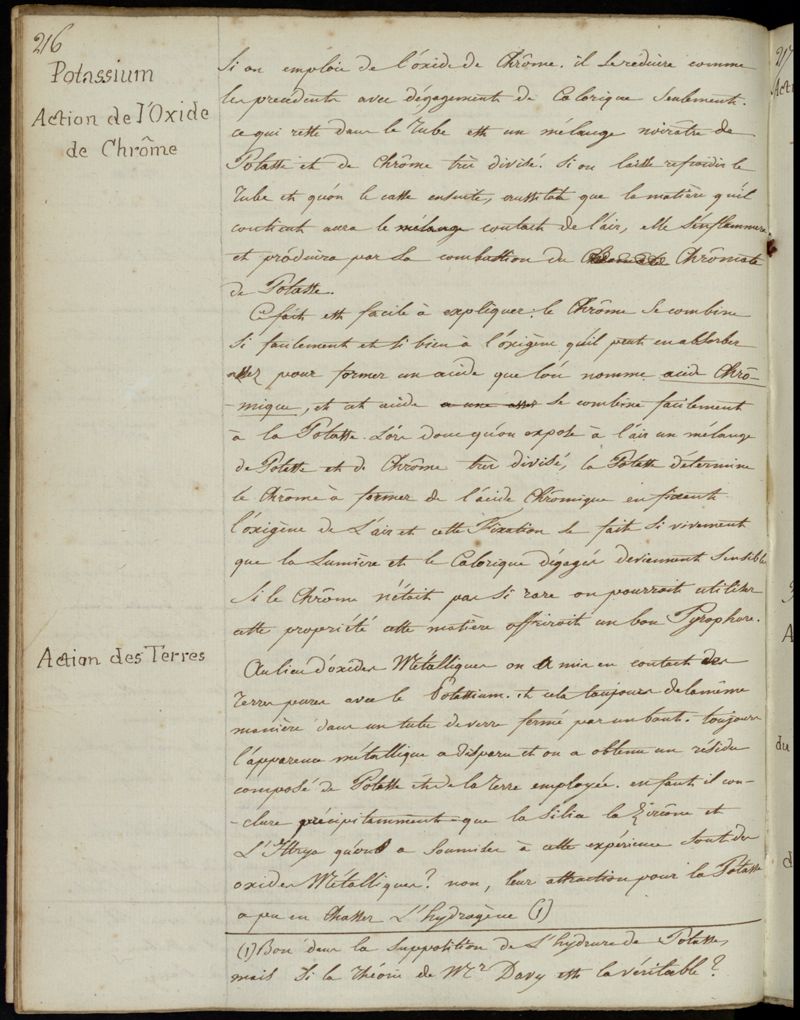 216
Potassium
Action de l'Oxide
de Chrôme
Si on emploie de l'oxide de Chrôme. il se réduire comme
les precédents avec dégagement de Calorique Seulement.
ce qui reste dans le Tube est un mélange noirâtre de
Potasse et de Chrôme très divisé. Si on laisse refroidir le
Tube et qu'on le casse ensuite, aussitot que la matière qu'il
contient aura le mélange contact de l'air, elle s'enflammera
et produira par sa combustion du Chrômate
de Potasse.
Ce fait est facile à expliquer: le Chrôme se combine
si facilement et si bien à l'oxigène qu'il peut en absorber
assez pour former un acide que l'on nomme acide Chrô-
-mique, et cet acide a une assez se combine facilement
à la Potasse. Lors donc qu'on expose à l'air un mélange
de Potasse et de Chrôme très divisé, la Potasse détermine
le Chrôme à former de l'acide Chrômique en fixant
l'oxigène de l'air et cette Fixation se fait si vivement
que la Lumière et le Calorique dégagés deviennent sensibles
Si le Chrôme n'était pas si rare on pourroit utiliser
cette propriété cette matière offriroit un bon Pyrophore.
Action des Terres
Au lieu d'oxides Métalliques on a mis en contact des
Terres pures avec le Potassium. et cela toujours de la même
manière dans un tube de verre fermé par un bout. toujours
l'apparence métallique a disparu et on a obtenu un résidu
composé de Potasse et de la terre employée. en faut il con-
-clure précipitamment que la Silice la Zircône et
L'Ittrya qu'on a soumises à cette expérience sont des
oxides Métalliques? non, leur attraction pour la Potasse
a pu en chasser L'hydrogène (1)
(1) Bon dans la supposition de L'hydrure de Potasse,
mais si la théorie de Mr Davy est la véritable?
217
Acti
A
du
d